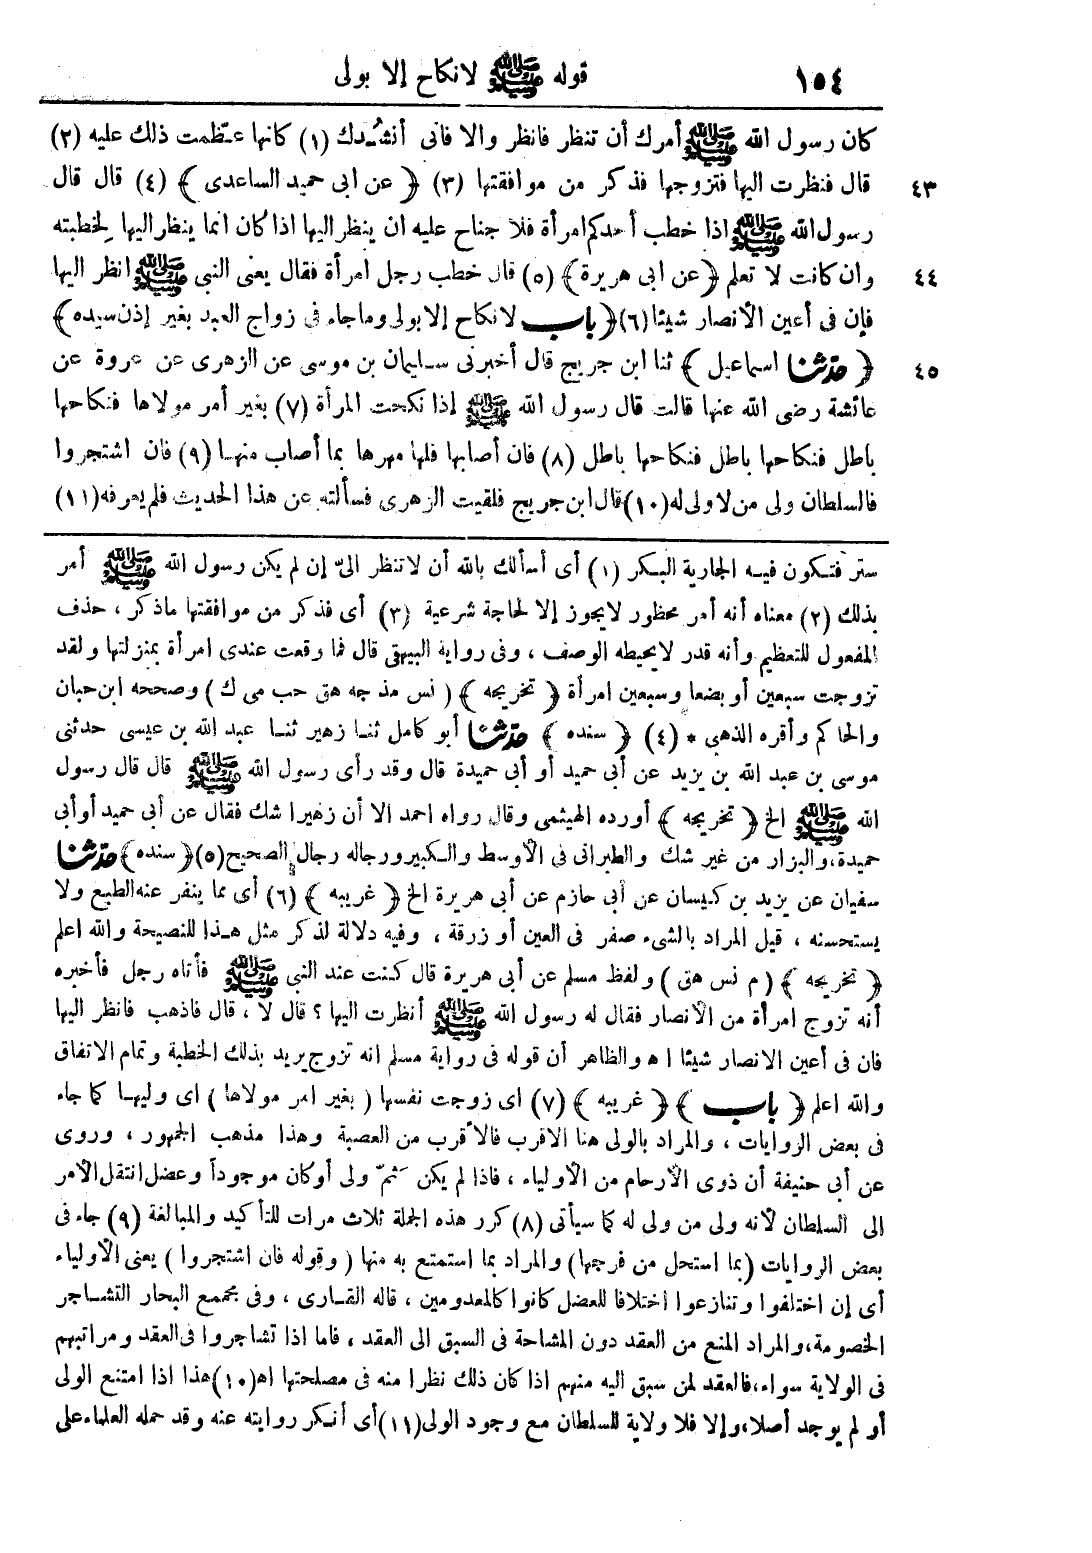 ١٥٤ قوله ﷺ لا نكاح إلا بولى
كان رسول الله ﷺ أمرك أن تنظر فانظر والا فانى أنشُدك (١) كانها عظمت ذلك عليه (٢)
٤٣ قال فنظرت اليها فتزوجها فذكر من موافقتها (٣) ﴿ عن ابى حميد الساعدى ﴾ (٤) قال قال
رسول الله ﷺ اذا خطب أحدكم امرأة فلا جناح عليه ان ينظر اليها اذا كان انما ينظر اليها لخطبته
٤٤ وان كانت لا تعلم ﴿ عن ابى هريرة ﴾ (٥) قال خطب رجل امرأة فقال يعنى النبى ﷺ انظر اليها
فإن فى أعين الأنصار شيئا (٦) ﴿ باب لا نكاح إلا بولى وما جاء فى زواج العبد بغير إذن سيده ﴾
٤٥ ﴿ حدثنا اسماعيل ﴾ ثنا ابن جريج قال أخبرنى سليمان بن موسى عن الزهرى عن عروة عن
عائشة رضى الله عنها قالت قال رسول الله ﷺ إذا نكحت المرأة (٧) بغير أمر مولاها فنكاحها
باطل فنكاحها باطل فنكاحها باطل (٨) فان أصابها فلها مهرها بما أصاب منها (٩) فان اشتجروا
فالسلطان ولى من لا ولى له (١٠) قال ابن جريج فلقيت الزهرى فسألته عن هذا الحديث فلم يعرفه (١١)
ستر فتكون فيه الجارية البكر (١) أى أسألك بالله أن لا تنظر الىّ إن لم يكن رسول الله ﷺ أمر
بذلك (٢) معناه أنه أمر محظور لا يجوز إلا لحاجة شرعية (٣) أى فذكر من موافقتها ما ذكر ، حذف
المفعول للتعظيم وأنه قدر لا يحيطه الوصف ، وفى رواية البيهقى قال فما وقعت عندى امرأة بمنزلتها ولقد
تزوجت سبعين أو بضعا وسبعين امرأة ﴿ تخريجه ﴾ ( نس مذ جه هق حب مى ك ) وصححه ابن حبان
والحاكم وأقره الذهبى * (٤) ﴿ سنده ﴾ حدثنا أبو كامل ثنا زهير ثنا عبد الله بن عيسى حدثنى
موسى بن عبد الله بن يزيد عن أبى حميد أو أبى حميدة قال وقد رأى رسول الله ﷺ قال قال رسول
الله ﷺ الخ ﴿ تخريجه ﴾ أورده الهيثمى وقال رواه احمد الا أن زهيرا شك فقال عن أبى حميد أو أبى
حميدة، والبزار من غير شك والطبرانى فى الأوسط والكبير ورجاله رجال الصحيح (٥) ﴿ سنده ﴾ حدثنا
سفيان عن يزيد بن كيسان عن أبى حازم عن أبى هريرة الخ ﴿ غريبه ﴾ (٦) أى مما ينفر عنه الطبع ولا
يستحسنه ، قيل المراد بالشىء صغر فى العين أو زرقة ، وفيه دلالة لذكر مثل هذا للنصيحة والله اعلم
﴿ تخريجه ﴾ ( م نس هق ) ولفظ مسلم عن أبى هريرة قال كنت عند النبى ﷺ فأتاه رجل فأخبره
أنه تزوج امرأة من الأنصار فقال له رسول الله ﷺ أنظرت اليها ؟ قال لا ، قال فاذهب فانظر اليها
فان فى أعين الانصار شيئا اه والظاهر أن قوله فى رواية مسلم انه تزوج يريد بذلك الخطبة وتمام الاتفاق
والله اعلم ﴿ باب ﴾ ﴿ غريبه ﴾ (٧) اى زوجت نفسها ( بغير امر مولاها ) اى وليها كما جاء
فى بعض الروايات ، والمراد بالولى هنا الاقرب فالأقرب من العصبة وهذا مذهب الجمهور ، وروى
عن أبى حنيفة أن ذوى الأرحام من الأولياء ، فاذا لم يكن ثمّ ولى أو كان موجوداً وعضل انتقل الأمر
الى السلطان لأنه ولى من ولى له كما سيأتى (٨) كرر هذه الجملة ثلاث مرات للتأكيد والمبالغة (٩) جاء فى
بعض الروايات (بما استحل من فرجها) والمراد بما استمتع به منها ( وقوله فان اشتجروا ) يعنى الأولياء
أى إن اختلفوا وتنازعوا اختلافا للعضل كانوا كالمعدومين ، قاله القارى ، وفى مجمع البحار التشاجر
الخصومة، والمراد المنع من العقد دون المشاحة فى السبق الى العقد ، فاما اذا تشاجروا فى العقد ومراتبهم
فى الولاية سواء، فالعقد لمن سبق اليه منهم اذا كان ذلك نظرا منه فى مصلحتها اه (١٠) هذا اذا امتنع الولى
أو لم يوجد أصلا، وإلا فلا ولاية للسلطان مع وجود الولى (١١) أى أنكر روايته عنه وقد حمله العلماء على